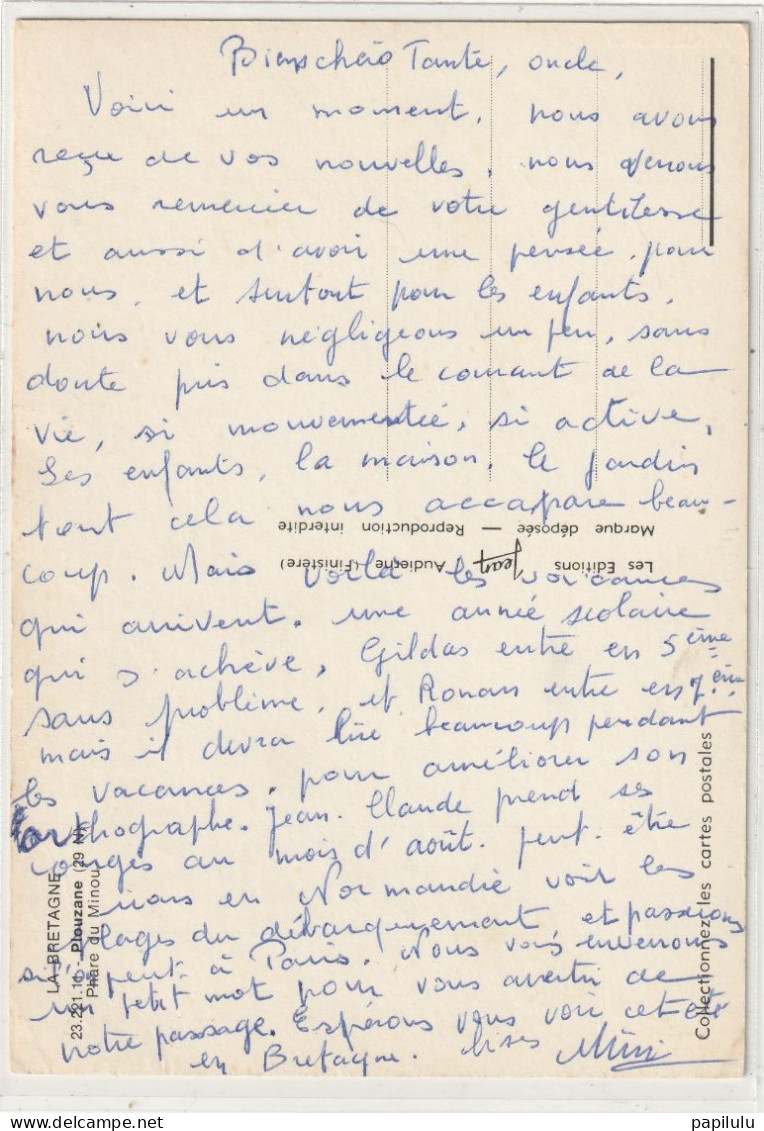 Biens chers Tante, oncle,
Voici un moment, nous avons
reçu de vos nouvelles, nous venons
vous remercier de votre gentillesse
et aussi d'avoir une pensée, pour
nous, et surtout pour les enfants.
nous vous négligeons un peu, sans
doute pris dans le courant de la
vie, si mouvementée, si active,
Les enfants, la maison, le jardin
tout cela nous accapare beau-
coup. Mais voilà les vacances
qui arrivent. une année scolaire
qui s'achève, Gildas entre en 5ème
sans problème, et Ronan entre en 7ème
mais il devra lire beaucoup pendant
les vacances, pour améliorer son
orthographe. Jean-Claude prend ses
congés au mois d'août. peut-être
irons en Normandie voir les
plages du débarquement et passerons
si peut-à Paris. Nous vous enverrons
un petit mot pour vous avertir de
notre passage. Espérons vous voir cet été
en Bretagne. Bises Mimi
Les Editions Jean Audierne (Finistère)
Marque déposée — Reproduction interdite
LA BRETAGNE
23.221.10 - Plouzane (29 N)
Phare du Minou
Collectionnez les cartes postales
papilulu